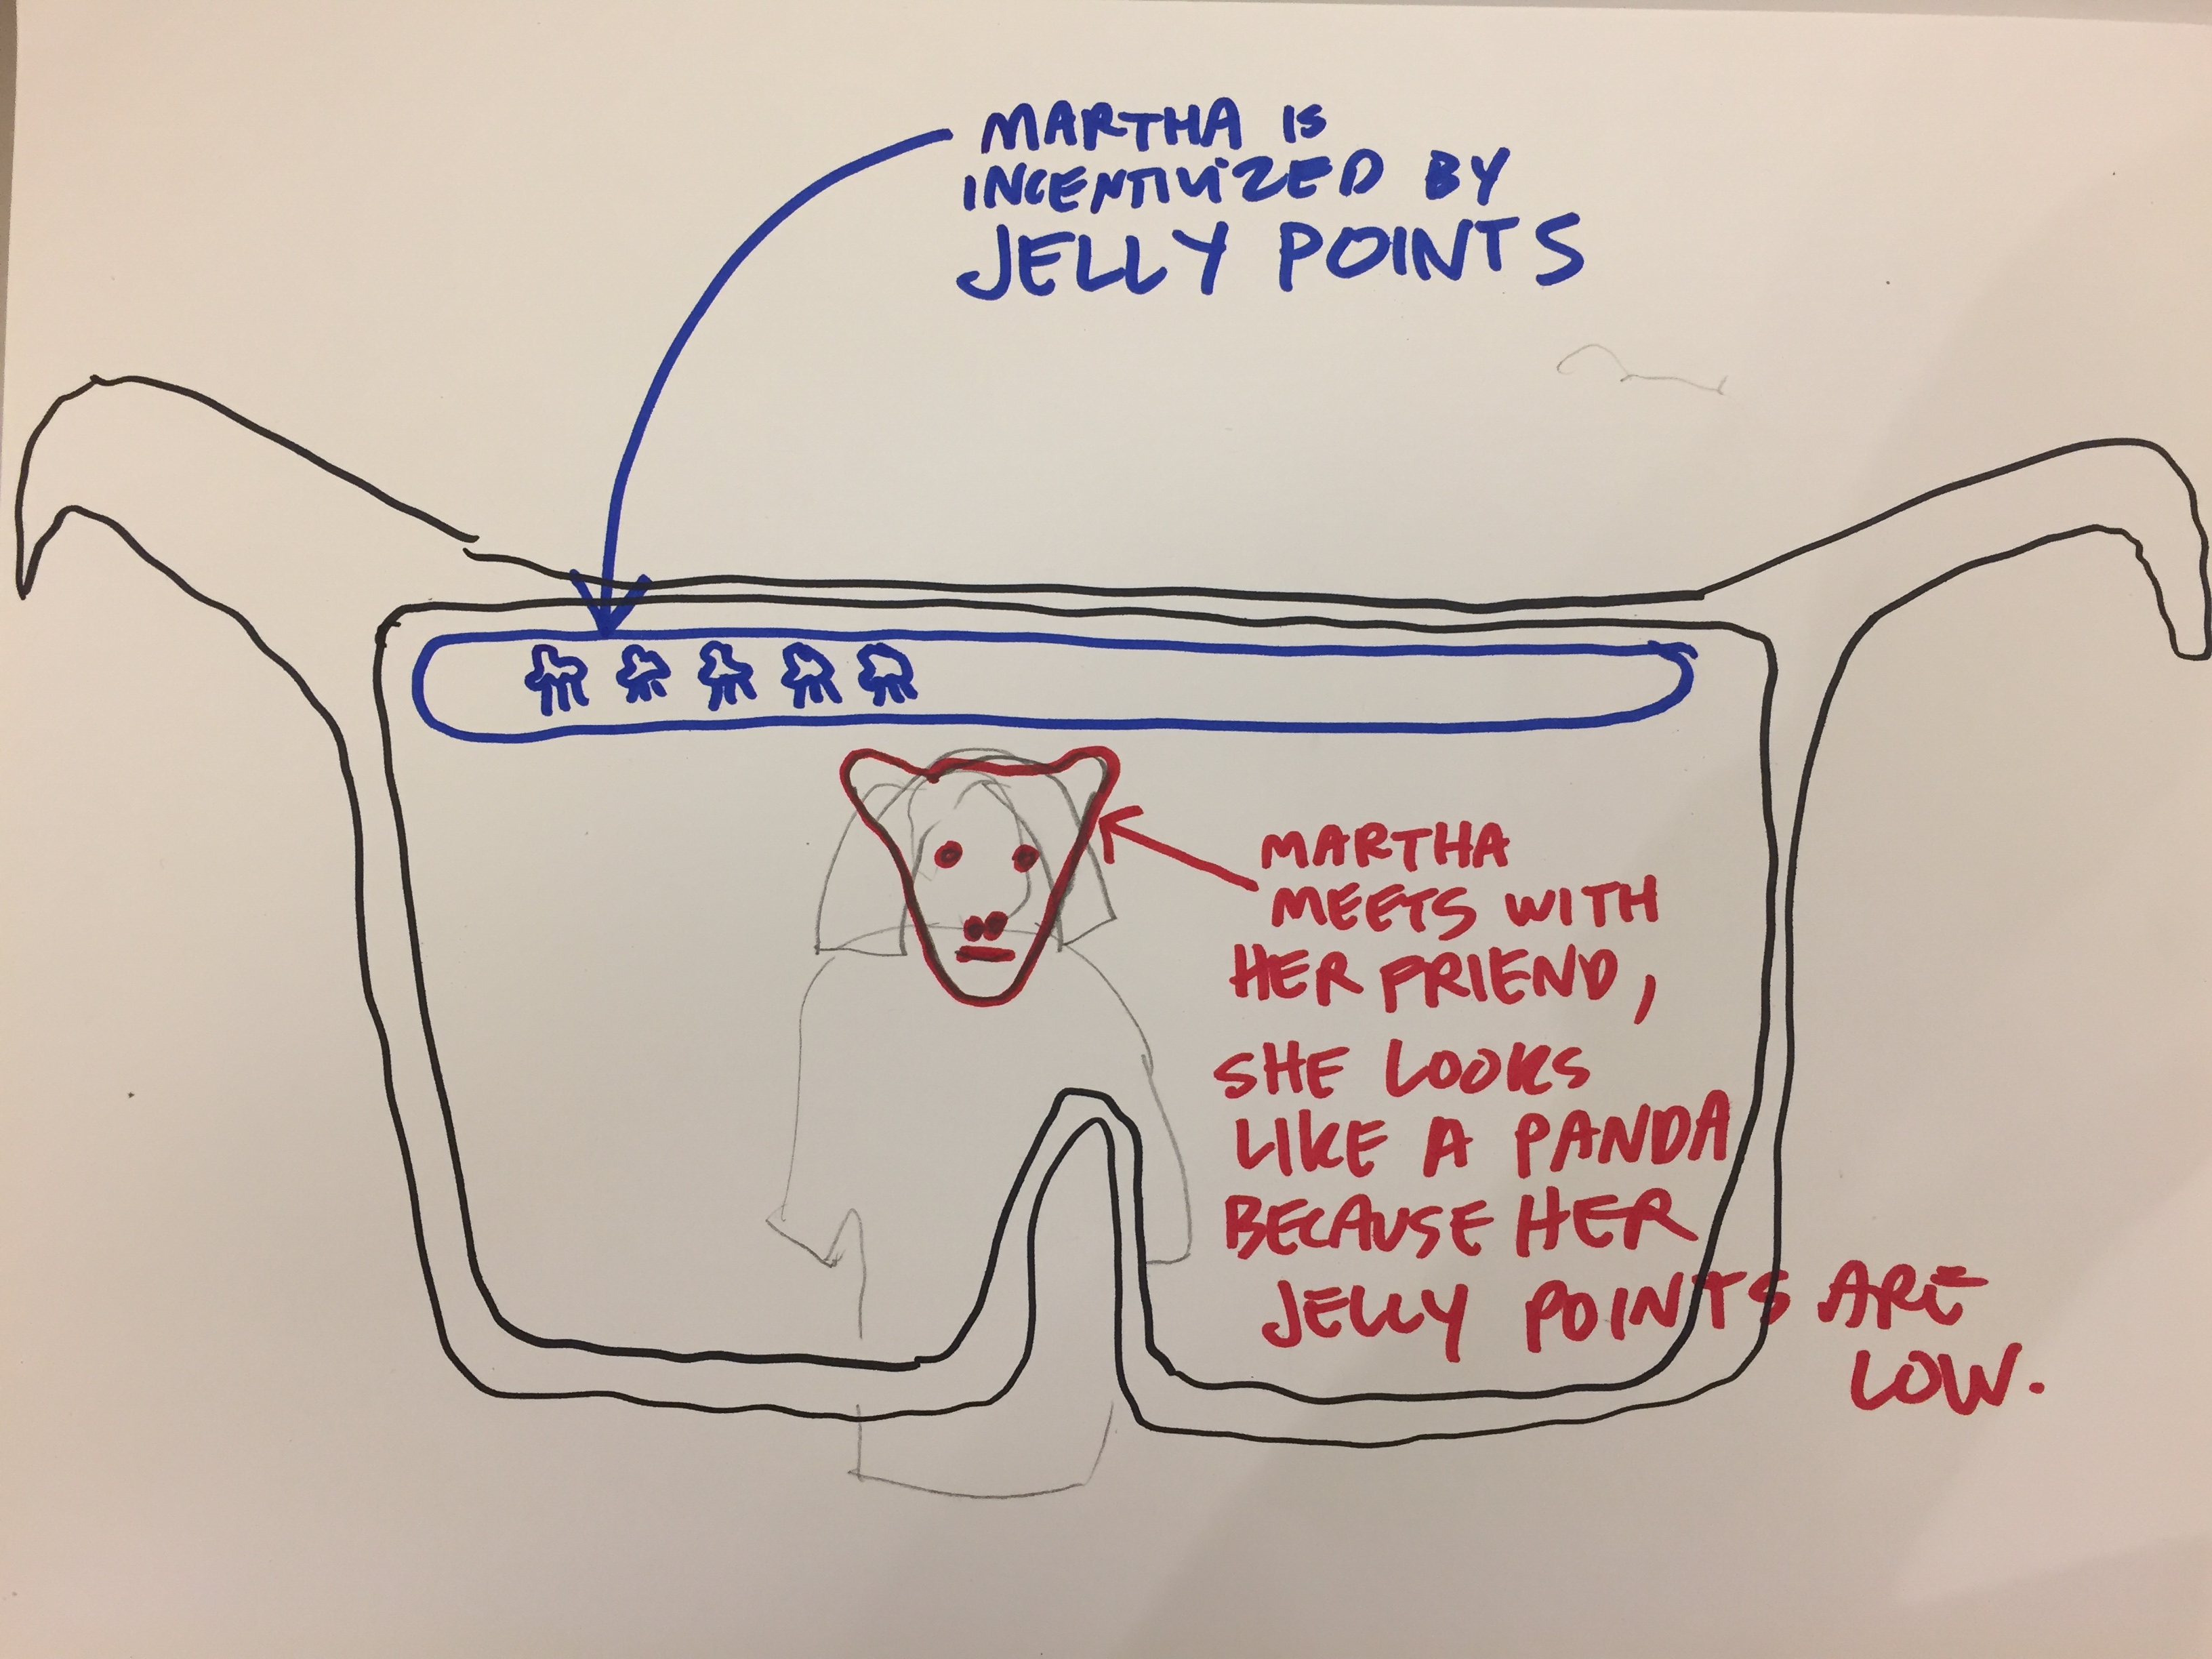 MARTHA IS
INCENTIVIZED BY
JELLY POINTS
MARTHA
MEETS WITH
HER FRIEND,
SHE LOOKS
LIKE A PANDA
BECAUSE HER
JELLY POINTS ARE
LOW.